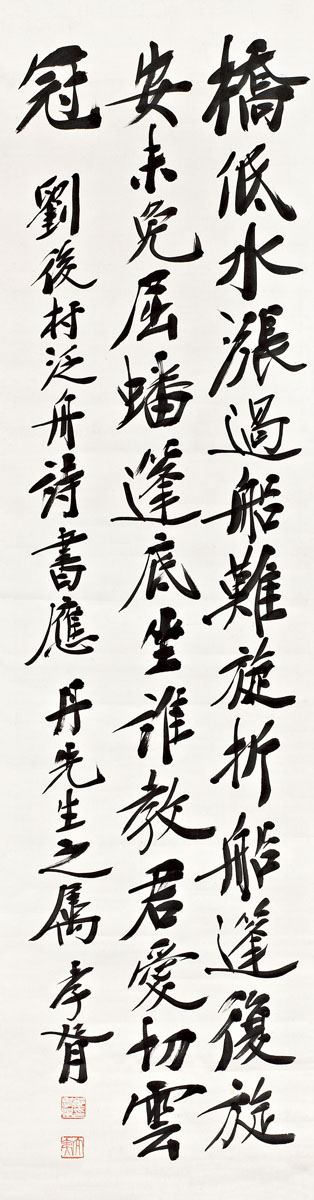 橋低水漲過船難旋折船篷復旋
安未免屈蟠篷底坐誰教君愛切雲
冠
劉後村泛舟詩書應丹先生之屬孝胥